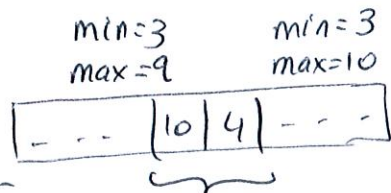 min=3 min=3
max=9 max=10
- - - 10 4 - - -